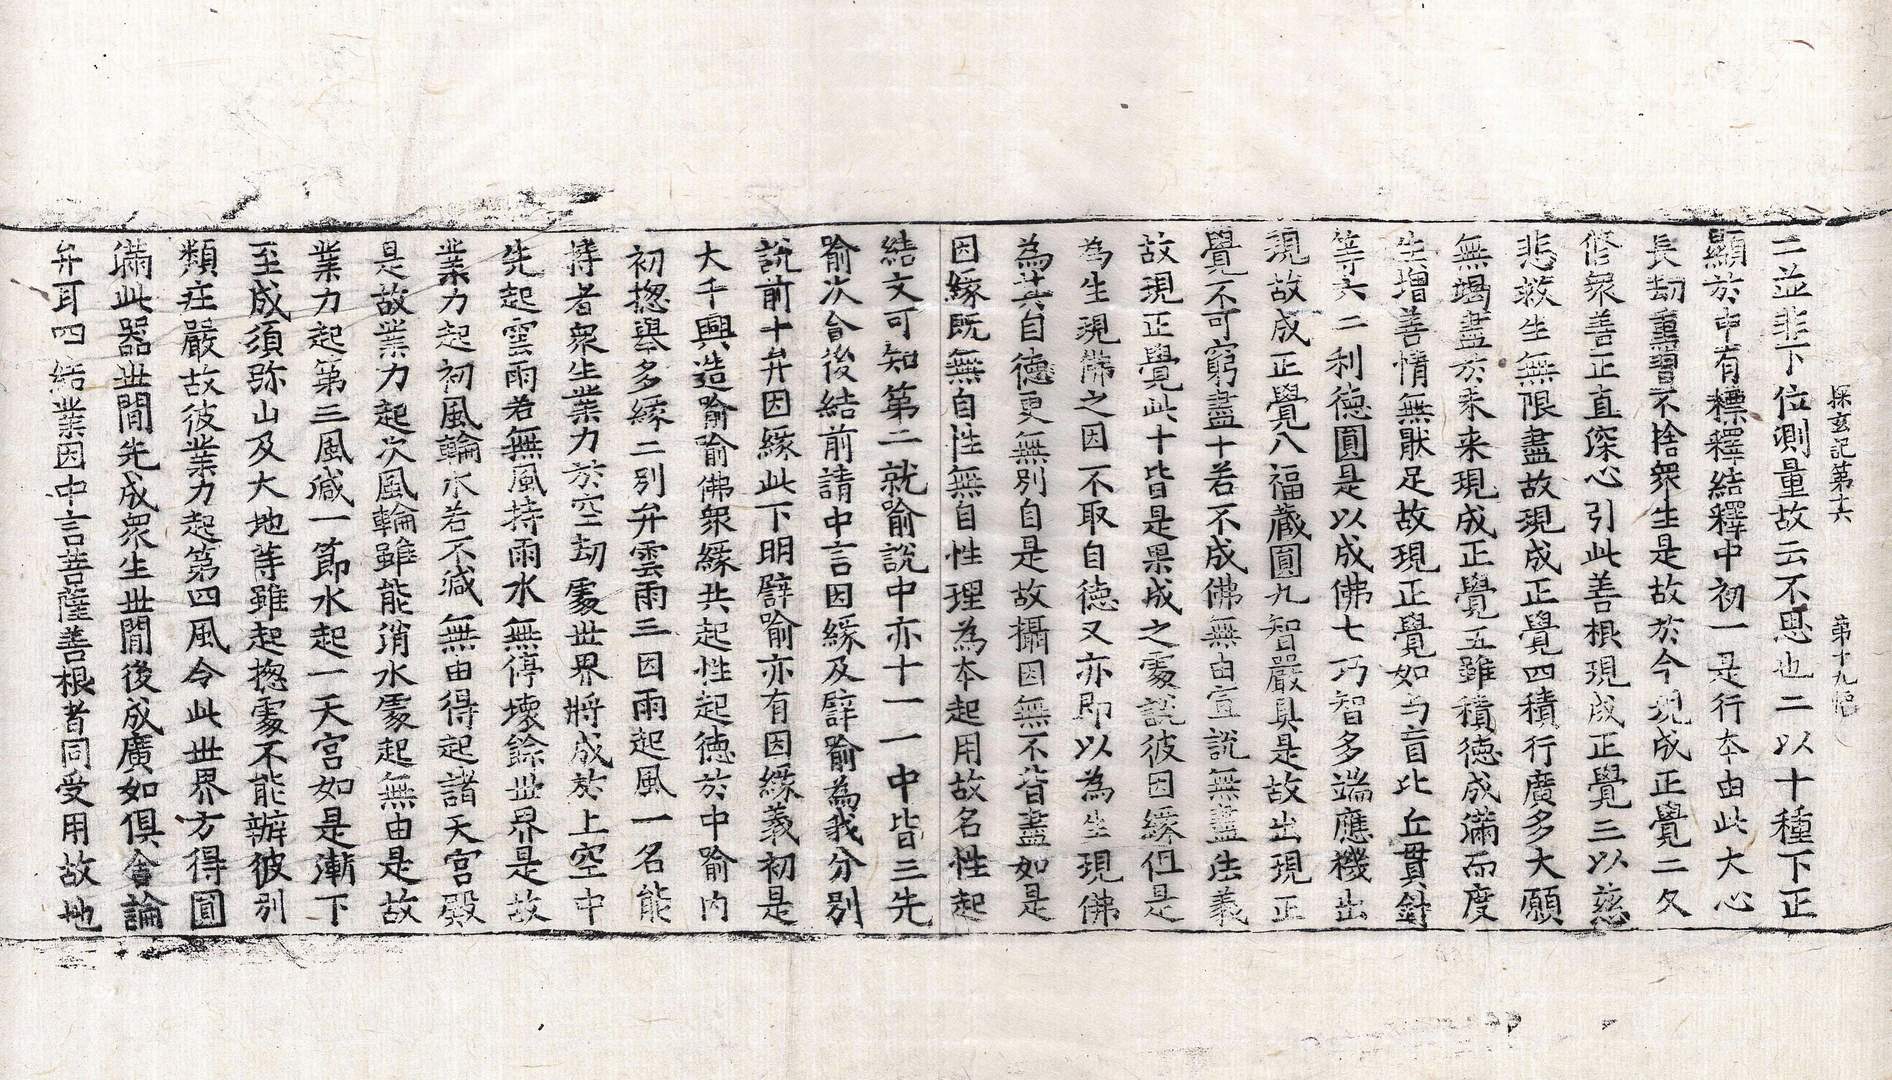 探玄記第十六 第十九幅
二並非下位測量故云不思也二以十種下正
顯於中有標釋結釋中初一是行本由此大心
長劫重習不捨衆生是故於今現成正覺二久
修衆善正直深心引此善根現成正覺三以慈
悲救生無限盡故現成正覺四積行廣多大願
無竭盡於未来現成正覺五雖積徳成滿而度
生增善情無猒足故現正覺如与盲比丘貫針
等六二利徳圓是以成佛七巧智多端應機出
現故成正覺八福藏圓九智嚴具是故出現正
覺不可窮盡十若不成佛無由宣說無盡法義
故現正覺此十皆是果成之處說彼因緣但是
為生現佛之因不取自徳又亦即以為生現佛
為其自德更無別自是故攝因無不皆盡如是
因緣既無自性無自性理為本起用故名性起
結文可知第二就喻說中亦十一一中皆三先
喻次合後結前請中言因緣及譬喻為我分別
說前十弁因緣此下明譬喻亦有因緣義初是
大千興造喻喻佛衆緣共起性起德於中喻內
初揔舉多緣二別弁雲雨三因雨起風一名能
持者衆生業力於空劫處世界將成於上空中
先起雲雨若無風持雨水無停壞餘世界是故
業力起初風輪水若不減無由得起諸天宮殿
是故業力起次風輪雖能消水處起無由是故
業力起第三風減一節水起一天宮如是漸下
至成須弥山及大地等雖起揔處不能辦彼別
類莊嚴故彼業力起第四風令此世界方得圓
滿此器世間先成衆生世間後成廣如俱舍論
弁耳四結業因中言菩薩善根者同受用故地